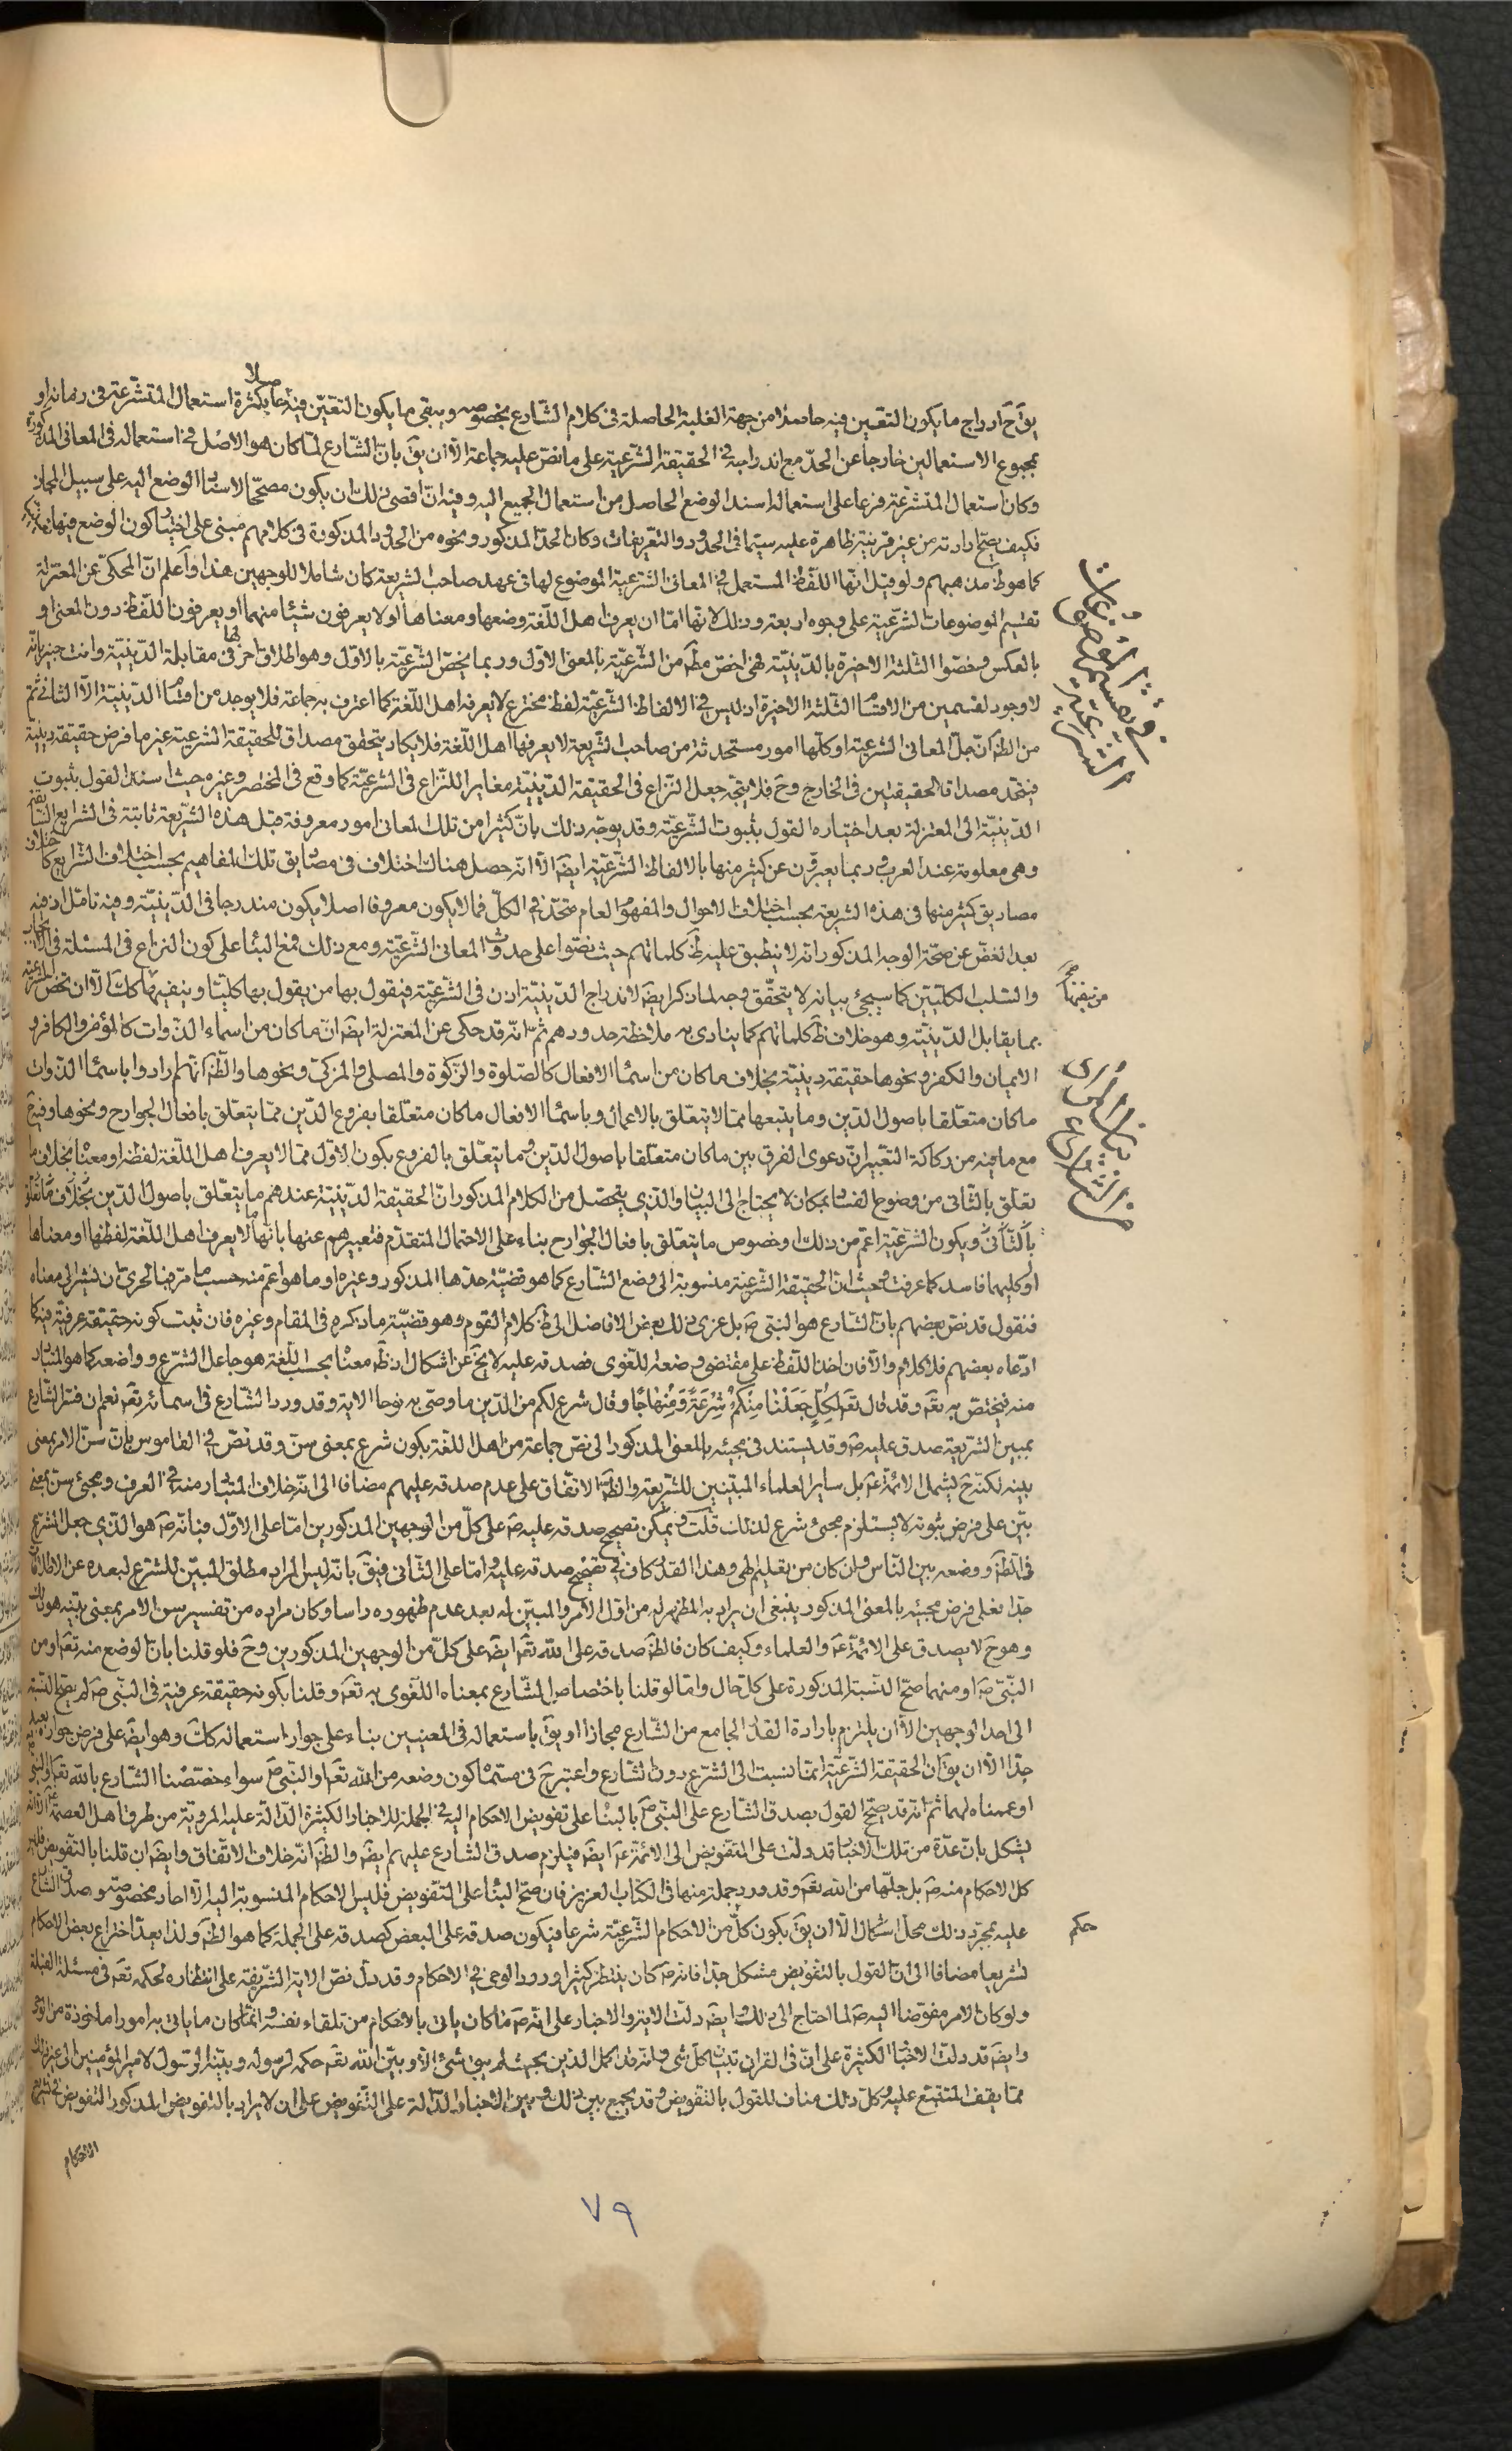 يق ح ادراج ما يكون التعين فيه حاصلا من جهة الغلبة الحاصلة فى كلام الشارع بخصوصه ويبقى ما يكون التعين فيه حاصلا بكثرة استعمال المتشرعة فى زمانه او
بمجموع الاستعمالين خارجا عن الحد مع اندراجه فى الحقيقة الشرعية على ما نص عليه جماعة الا ان يق بان الشارع لما كان هو الاصل فى استعماله فى المعانى المذكورة
وكان استعمال المتشرعة فرعا على استعماله اسند الوضع الحاصل من استعمال الجميع اليه وفيه ان اقصى ذلك ان يكون مصححا لاسناد الوضع اليه على سبيل المجاز
فكيف يصح ارادته من غير قرينة ظاهرة عليه سيما فى الحدود والتعريفات وكان الحد المذكور ونحوه من الحدود المذكورة فى كلامهم مبنى على اختيار كون الوضع فيها
كما هو ظ مذهبهم ولو قيل انها اللفظ المستعمل فى المعانى الشرعية الموضوع لها فى عهد صاحب الشريعة كان شاملا للوجهين هذا واعلم ان المحكى عن المعتزلة
تقسيم الموضوعات الشرعية على وجوه اربعة وذلك لانها اما ان يعرف اهل اللغة وضعها ومعناها اولا يعرفون شيئا منهما او يعرفون اللفظ دون المعنى او
بالعكس وخصوا الثلثة الاخيرة بالدينية فهى اخص مطم من الشرعية بالمعنى الاول وربما يخص الشرعية بالاول وهو اطلاق اخر لها فى مقابلة الدينية وانت خبير بانه
لا وجود لقسمين من الاقسام الثلثة الاخيرة اذ ليس فى الالفاظ الشرعية لفظ مخترع لا يعرفه اهل اللغة كما اعترف به جماعة فلا يوجد من اقسام الدينية الا الثانى ثم
من الظ ان جل المعانى الشرعية او كلها امور مستحدثة من صاحب الشريعة لا يعرفها اهل اللغة فلا يكاد يتحقق مصداق للحقيقة الشرعية غير ما فرض حقيقة دينية
فيتحد مصداق الحقيقتين فى الخارج وح فلا يتجه جعل النزاع فى الحقيقة الدينية مغايرا للنزاع فى الشرعية كما وقع فى المختصر وغيره حيث اسند القول بثبوت
الدينية الى المعتزلة بعد اختياره القول بثبوت الشرعية وقد يوجه ذلك بان كثيرا من تلك المعانى امور معروفة قبل هذه الشريعة ثابتة فى الشرايع السابقة
وهى معلومة عند العرب وربما يعبرون عن كثير منها بالالفاظ الشرعية ايضا الا انه حصل هناك اختلاف فى مصاديق تلك المفاهيم بحسب اختلاف الشرايع كاختلاف
مصاديق كثير منها فى هذه الشريعة بحسب اختلاف الاحوال والمفهوم العام متحد فى الكل فما لا يكون معروفا اصلا يكون مندرجا فى الدينية وفيه تامل اذ فيه
بعد الغض عن صحة الوجه المذكور انه لا ينطبق عليه ظ كلماتهم حيث نصوا على حدوث المعانى الشرعية ومع ذلك فمع البناء على كون النزاع فى المسئلة فى الايجاب
والسلب الكليين كما سيجئ بيانه لا يتحقق وجه لما ذكر ايضا لاندراج الدينية اذن فى الشرعية فيقول بها من يقول بها كليتا وينفيها من ينفيها كك الا ان تخص الشرعية
بما يقابل الدينية وهو خلاف ظ كلماتهم كما ينادى به ملاحظة حدودهم ثم انه قد حكى عن المعتزلة ايضا ان ما كان من اسماء الذوات كالمؤمن والكافر و
الايمان والكفر ونحوها حقيقة دينية بخلاف ما كان من اسماء الافعال كالصلوة والزكوة والمصلى والمزكى ونحوها والظ انهم ارادوا باسماء الذوات
ما كان متعلقا باصول الدين وما يتبعها مما لا يتعلق بالاعمال وباسماء الافعال ما كان متعلقا بفروع الدين مما يتعلق بافعال الجوارح ونحوها وفيه
مع ما فيه من ركاكة التعبير ان دعوى الفرق بين ما كان متعلقا باصول الدين وما يتعلق بالفروع بكون الاول مما لا يعرف اهل اللغة لفظه او معناه بخلاف ما
تعلق بالثانى من وضوح الفساد بمكان لا يحتاج الى البيان والذى يتحصل من الكلام المذكور ان الحقيقة الدينية عندهم ما يتعلق باصول الدين بخلاف ما تعلق
بالثانى ويكون الشرعية اعم من ذلك او خصوص ما يتعلق بافعال الجوارح بناء على الاحتمال المتقدم فتعبيرهم عنها بانها ما لا يعرف اهل اللغة لفظها او معناها
او كليهما فاسد كما عرفت وحيث ان الحقيقة الشرعية منسوبة الى وضع الشارع كما هو قضية حدها المذكور وغيره او ما هو اعم منه حسب ما مر فبالحرى ان نشير الى معناه
فنقول قد نص بعضهم بان الشارع هو النبى ص بل عزى ذلك بعض الافاضل الى ظ كلام القوم وهو قضية ما ذكره فى المقام وغيره فان ثبت كونه حقيقة عرفية فيه كما
ادعاه بعضهم فلا كلام والا فان اخذ اللفظ على مقتضى وضعه اللغوى فصدقه عليه لا يخ عن اشكال اذ ظ معناه بحسب اللغة هو جاعل الشرع وواضعه كما هو المتبادر
منه فيختص به تعم وقد قال تعم لكل جعلنا منكم شرعة ومنهاجا وقال شرع لكم من الدين ما وصى به نوحا الاية وقد ورد الشارع فى اسمائه تعم نعم ان فسر الشارع
بمبين الشريعة صدق عليه ص وقد يستند فى مجيئه بالمعنى المذكور الى نص جماعة من اهل اللغة بكون شرع بمعنى سن وقد نص فى القاموس بان سن الامر بمعنى
بينه لكنه ح يشمل الائمة ع بل ساير العلماء المبينين للشريعة والظ الاتفاق على عدم صدقه عليهم مضافا الى انه خلاف المتبادر منه فى العرف ومجئ سن بمعنى
بين على فرض ثبوته لا يستلزم مجئ شرع لذلك قلت ويمكن تصحيح صدقه عليه ص على كل من الوجهين المذكورين اما على الاول فبانه ص هو الذى جعل الشرع
فى الظ ووضعه بين الناس وان كان من تعليم الهى وهذا القدر كاف فى تصحيح صدقه عليه واما على الثانى فيق بانه ليس المراد مطلق المبين للشرع لبعده عن الاطلاق
جدا فعلى فرض مجيئه بالمعنى المذكور ينبغى ان يراد به المظهر له من اول الامر والمبين له بعد عدم ظهوره راسا وكان مراده من تفسير سن الامر بمعنى بينه هو ذلك
وهو ح لا يصدق على الائمة ع والعلماء وكيف كان فالظ صدقه على الله تعم ايضا على كل من الوجهين المذكورين وح فلو قلنا بان الوضع منه تعم او من
النبى ص او منهما صح النسبة المذكورة على كل حال واما لو قلنا باختصاص الشارع بمعناه اللغوى به تعم وقلنا بكونه حقيقة عرفية فى النبى ص لم يصح النسبة
الى احد الوجهين الا ان يلتزم بارادة القدر الجامع من الشارع مجازا او يق باستعماله فى المعنيين بناء على جواز استعماله كك وهو ايضا على فرض جوازه بعيد
جدا الا ان يق ان الحقيقة الشرعية انما نسبت الى الشرع دون الشارع واعتبر ح فى مسماه كون وضعه من الله تعم او النبى ص سواء خصصنا الشارع بالله تعم او النبى
او عممناه لهما ثم انه قد يصح القول بصدق الشارع على النبى ص بالبناء على تفويض الاحكام اليه فى الجملة للاخبار الكثيرة الدالة عليه المروية من طرق اهل العصمة ع الا انه
يشكل بان عدة من تلك الاخبار قد دلت على التفويض الى الائمة ع ايضا فيلزم صدق الشارع عليهم ايضا والظ انه خلاف الاتفاق وايضا ان قلنا بالتفويض فليس
كل الاحكام منه ص بل جلها من الله تعم وقد ورد جملة منها فى الكتاب العزيز فان صح البناء على التفويض فليس الاحكام المنسوبة اليه الا احاد مخصوصة وصدق الشارع
عليه بمجرد ذلك محل اشكال الا ان يق بكون كل من الاحكام الشرعية شرعا فيكون صدقه على البعض كصدقه على الجملة كما هو الظ ولذا يعد اختراع بعض الاحكام
تشريعا مضافا الى ان القول بالتفويض مشكل جدا فانه ص كان ينتظر كثيرا ورود الوحى فى الاحكام وقد دل نص الاية الشريفة على انتظاره لحكمه تعم فى مسئلة القبلة
ولو كان الامر مفوضا اليه ص لما احتاج الى ذلك وايضا دلت الاية والاخبار على انه ص ما كان ياتى بالاحكام من تلقاء نفسه وانما كان ما ياتى به امورا ماخوذة من الوحى
وايضا قد دلت الاخبار الكثيرة على ان فى القران تبيان كل شئ وانه قد اكمل الدين بحيث لم يبق شئ الا وبين الله تعم حكمه لرسوله وبينه الرسول لامير المؤمنين الى غير ذلك
مما يقف المتتبع عليه وكل ذلك مناف للقول بالتفويض وقد يجمع بين ذلك وبين الاخبار الدالة على التفويض على ان لا يراد بالتفويض المذكور التفويض فى تشريع
الاحكام
فى تقسيم الموضوعات الشرعية
من ينفيها صح
بيان المراد من الشارع
حكم
٧٩